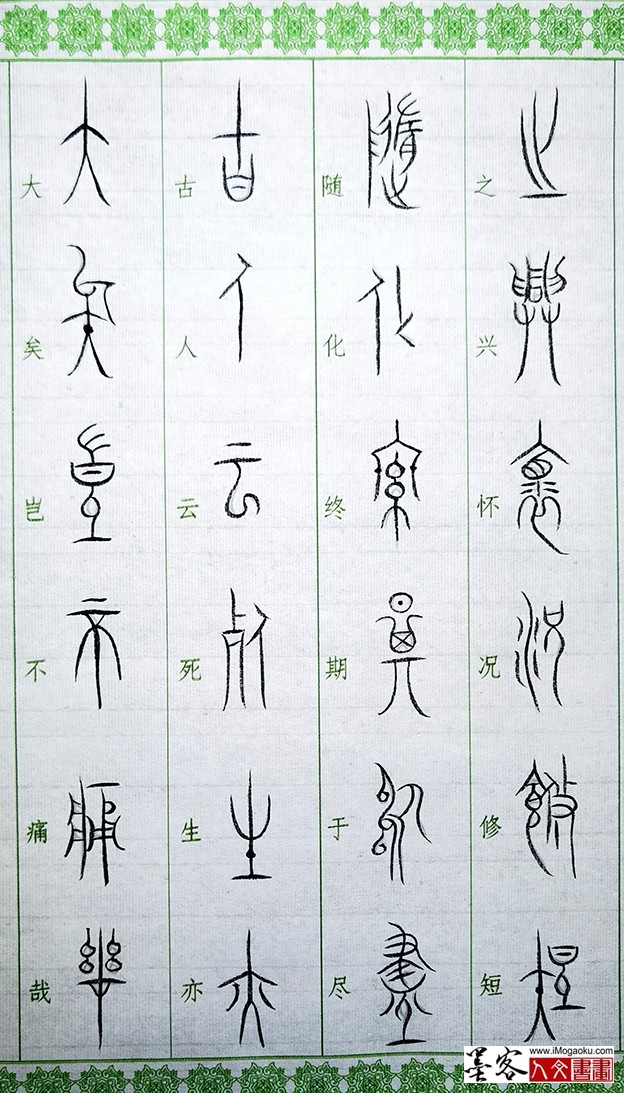 之兴怀况修短
随化终期于尽
古人云死生亦
大矣岂不痛哉
墨客
www.iMogaoku.com
人文書畫